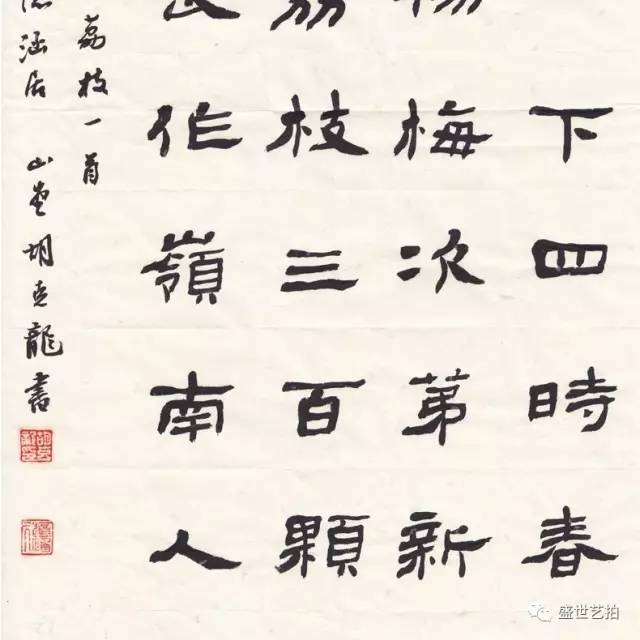 下四時春
楊梅次第新
荔枝三百顆
長作嶺南人
荔枝一首
涵居 山 胡 龍書
盛世艺拍